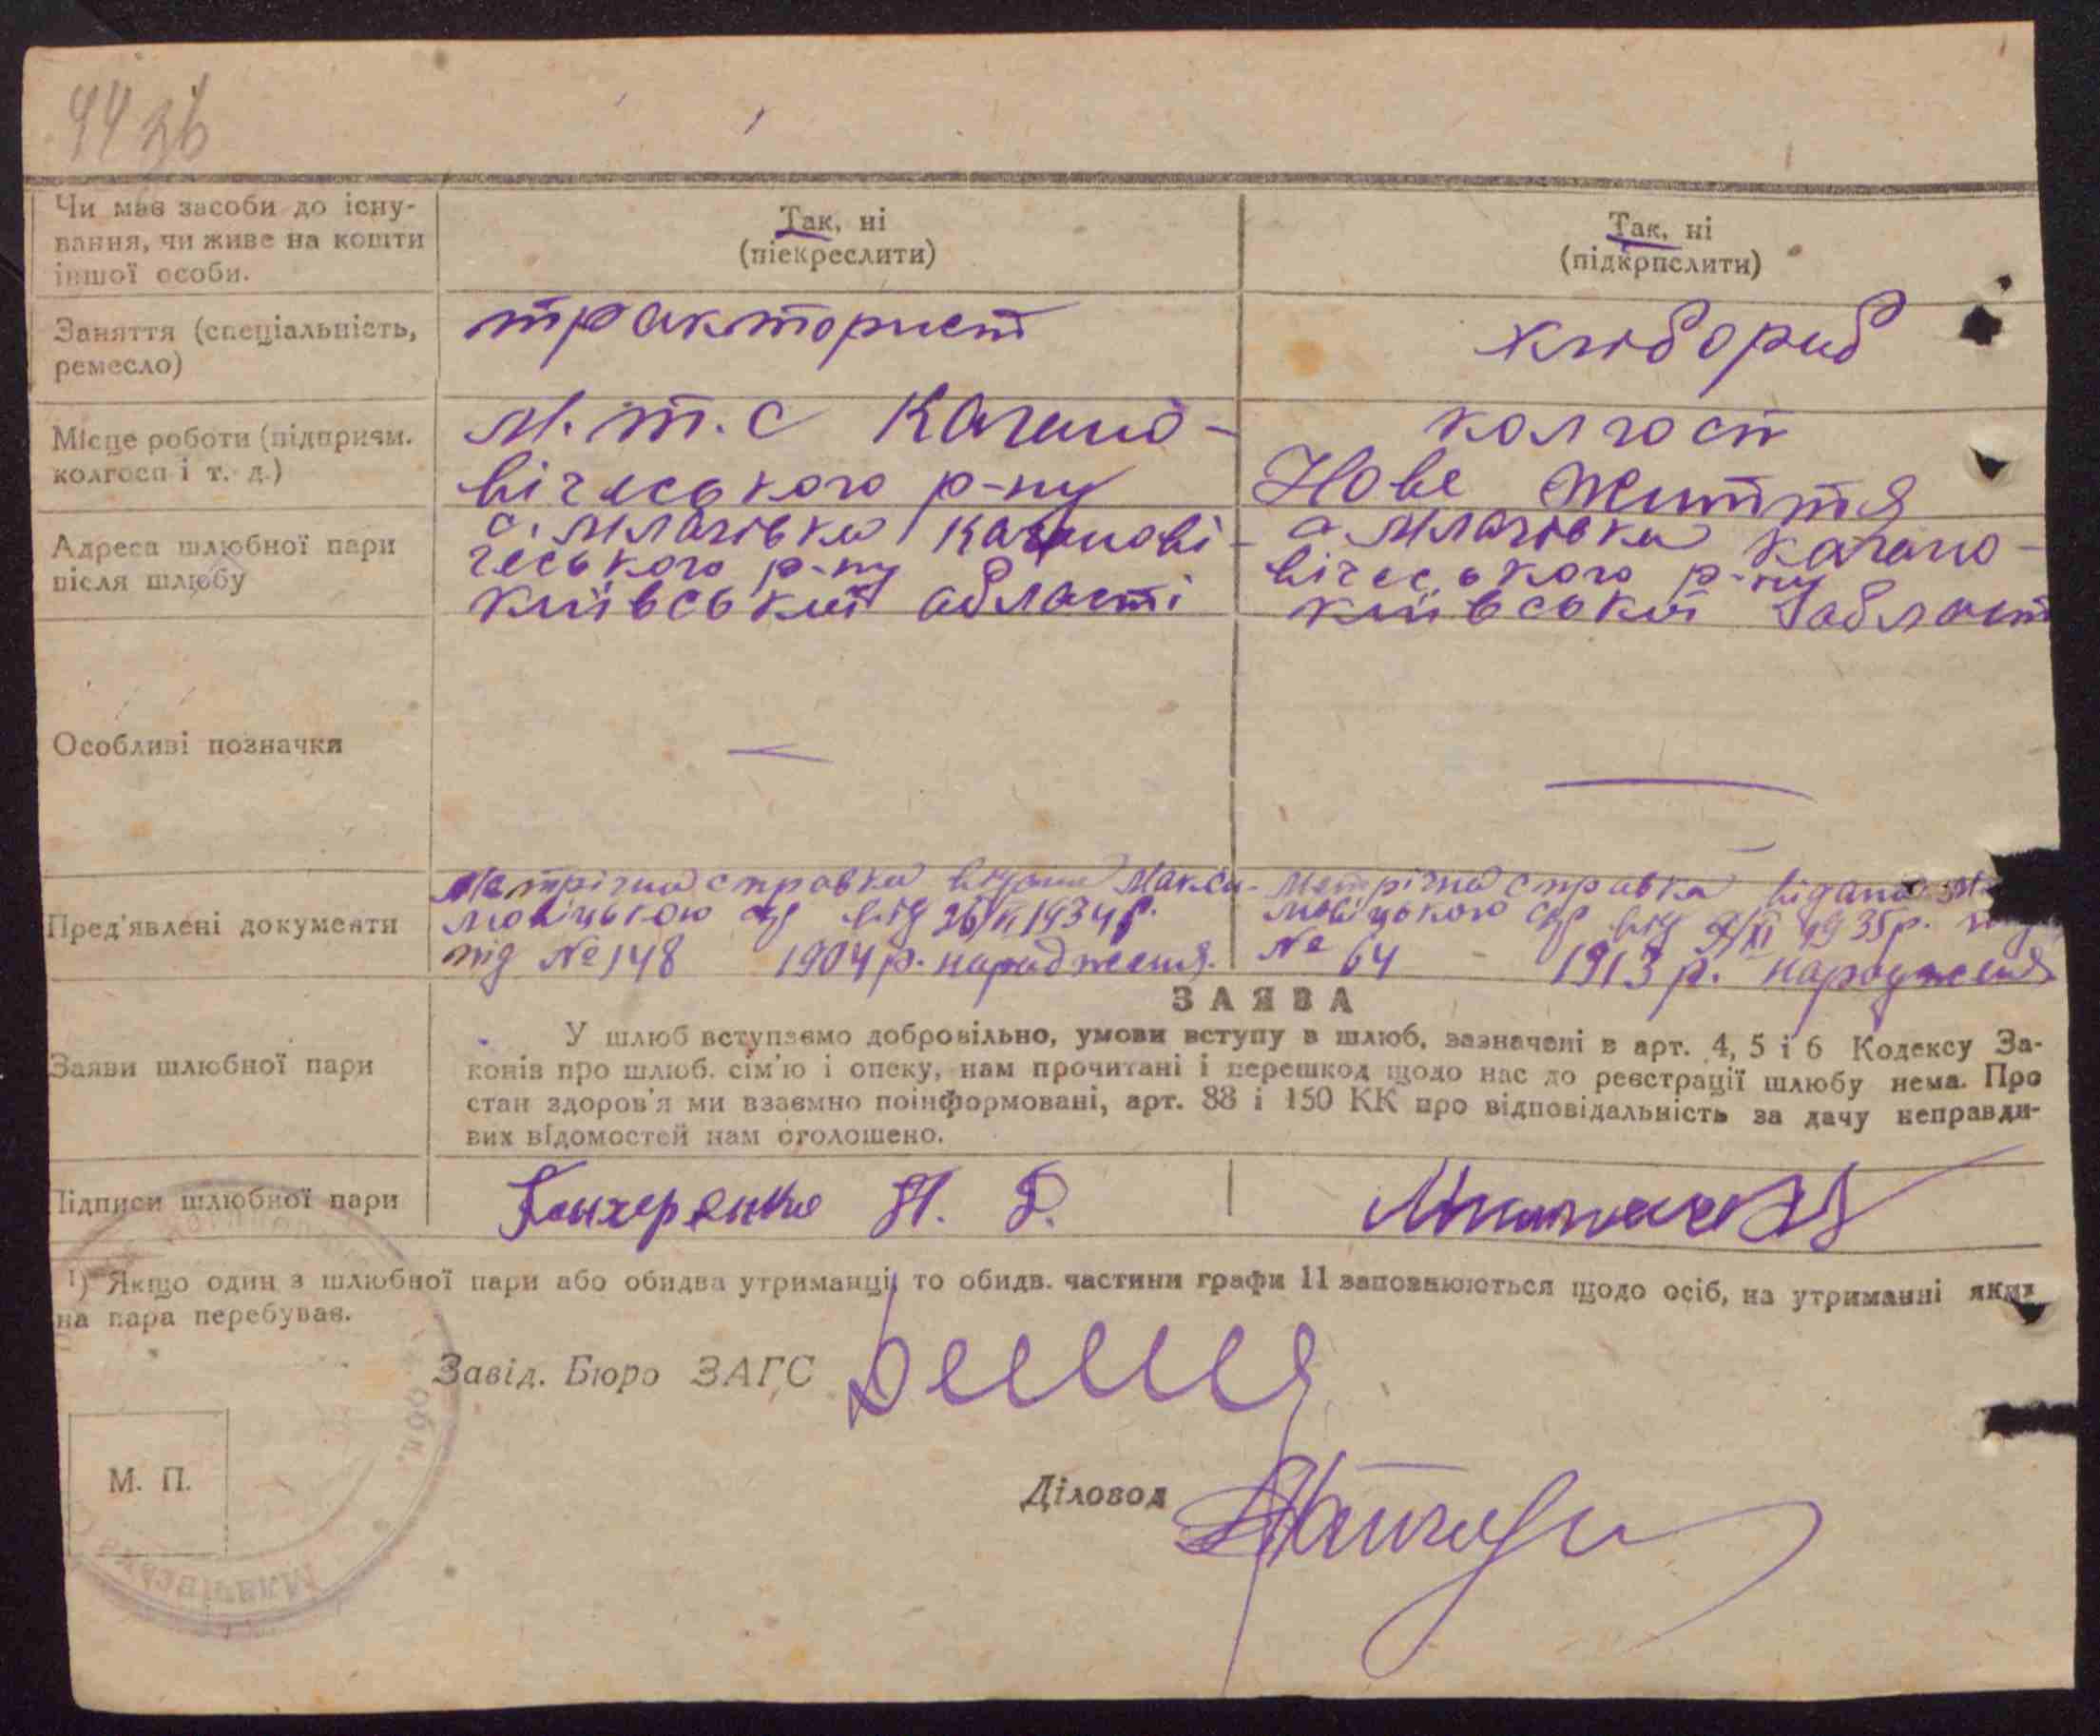 44 зв
Чи має засоби до існу-
вання, чи живе на кошти
іншої особи.
Так, ні
(піекреслити)
Так, ні
(підкрпслити)
Заняття (спеціальність,
ремесло)
тракторист
хлібориб
Місце роботи (підприєм.
колгосп і т. д.)
М. т. с Кагано-
вічеського р-ну
колгосп
Нове Життя
Адреса шлюбної пари
після шлюбу
с. Млачівка Каганові-
чеського р-ну
київської області
с Млачівка Кагано-
вічеського р-ну
київської област
Особливі позначки
Пред'явлені документи
Метрічна справка видана Макси-
мовіцькою с/р від 26/VI 1934 р.
під № 148 1904 р. народження.
Метрічна справка видана
мовіцького с/р від XI 1935 р.
№ 64 - 1913 р. народження
Заяви шлюбної пари
ЗАЯВА
У шлюб вступаємо добровільно, умови вступу в шлюб, зазначені в арт. 4, 5 і 6 Кодексу За-
конів про шлюб. сім'ю і опеку, нам прочитані і перешкод щодо нас до реєстрації шлюбу нема. Про
стан здоров'я ми взаємно поінформовані, арт. 88 і 150 КК про відповідальність за дачу неправди-
вих відомостей нам оголошено.
Підписи шлюбної пари
Гончеренко Н. Д.
¹) Якщо один з шлюбної пари або обидва утриманці, то обидв. частини графи 11 заповнюються щодо осіб, на утриманні яких
на пара перебуває.
Завід. Бюро ЗАГС
Діловод
М. П.
обл.
Млачівська